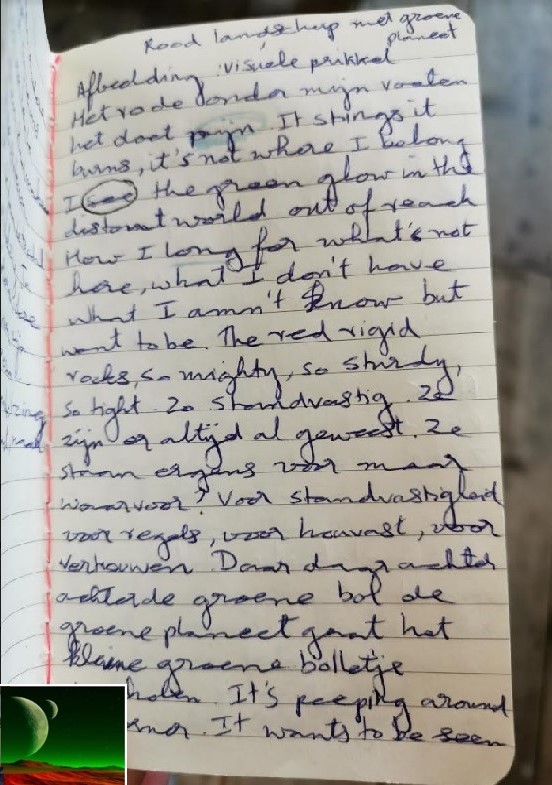 Rood landschap met groene
planeet
Afbeelding: visuele prikkel
Het rode onder mijn voeten
het doet pijn. It stings it
burns, it's not where I belong
I see the green glow in the
distant world out of reach
How I long for what's not
here, what I don't have
what I amn't know but
want to be. The red rigid
rocks, so mighty, so sturdy,
so tight. Zo standvastig. Ze
zijn er altijd al geweest. Ze
staan ergens voor maar
waarvoor? Voor standvastigheid
voor regels, voor houvast, voor
vertrouwen. Daar achter
achter de groene bol de
groene planeet gaat het
kleine groene bolletje
It's peeping around
It wants to be seen